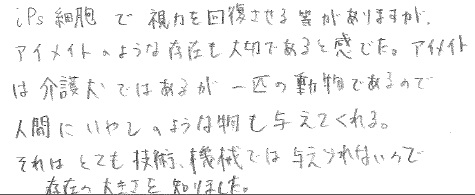 iPS細胞で視力を回復させる等がありますが、
アイメイトのような存在も大切であると感じた。アイメイト
は介護犬ではあるが一匹の動物であるので
人間にいやしのような物も与えてくれる。
それはとても技術、機械では与えられないので
存在の大きさを知りました。